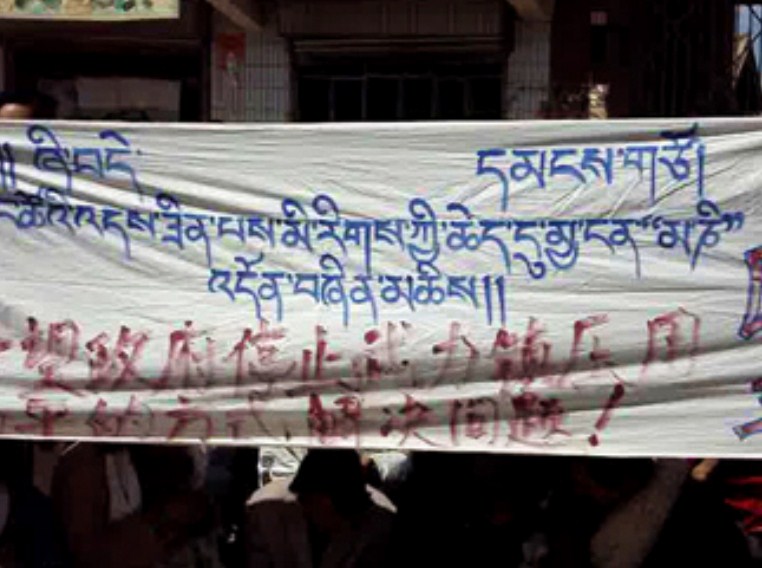 །། ཞི་བདེ་ དམངས་གཙོ།
འཚོའི་འདས་ཟིན་པས་མི་རིགས་ཀྱི་ཆེད་དུ་མྱ་ངན་“མ་ཎི”
འདོན་བཞིན་མཆིས།།
望政府停止武力镇压用
平的方式、解决问题！